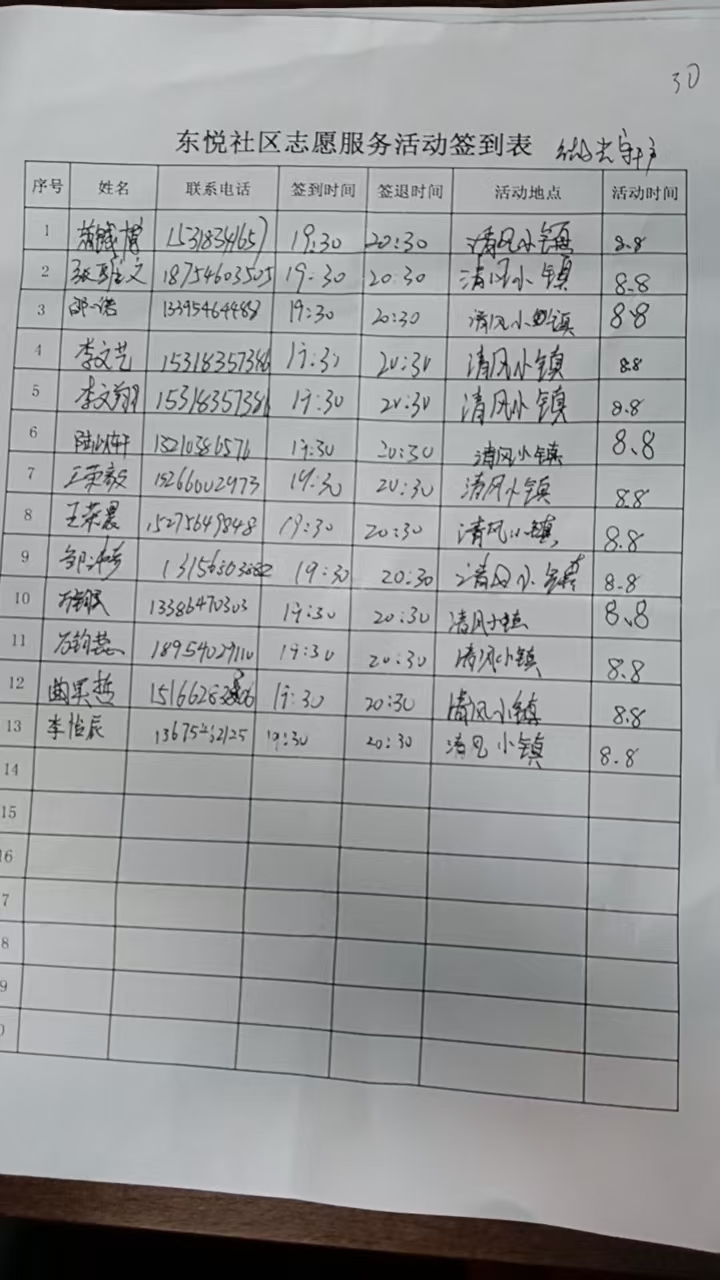 30
东悦社区志愿服务活动签到表
序号 姓名 联系电话 签到时间 签退时间 活动地点 活动时间
1 19:30 20:30 清风小镇 8.8
2 18754603505 19:30 20:30 清风小镇 8.8
3 邵一诺 13395464488 19:30 20:30 清风小镇 8.8
4 李文艺 15318357386 19:30 20:30 清风小镇 8.8
5 李文翔 15318357386 19:30 20:30 清风小镇 8.8
6 19:30 20:30 清风小镇 8.8
7 王荣毅 15266002973 19:30 20:30 清风小镇 8.8
8 王荣晨 15275649848 19:30 20:30 清风小镇 8.8
9 19:30 20:30 清风小镇 8.8
10 13386470303 19:30 20:30 清风小镇 8.8
11 18954029110 19:30 20:30 清风小镇 8.8
12 19:30 20:30 清风小镇 8.8
13 李怡辰 19:30 20:30 清风小镇 8.8
14
15
16
7
8
9
0